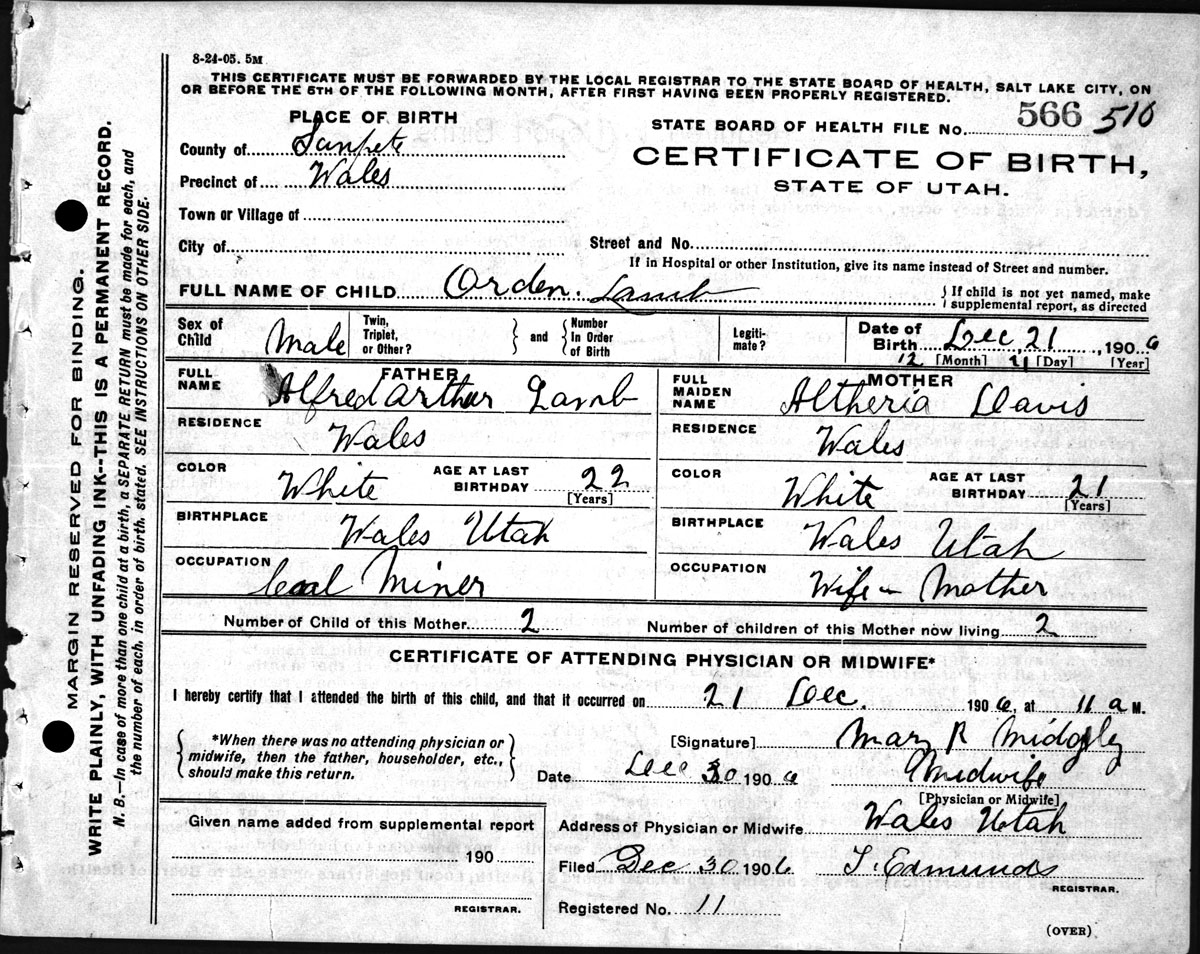 8-24-05. 5M
THIS CERTIFICATE MUST BE FORWARDED BY THE LOCAL REGISTRAR TO THE STATE BOARD OF HEALTH, SALT LAKE CITY, ON
OR BEFORE THE 5TH OF THE FOLLOWING MONTH, AFTER FIRST HAVING BEEN PROPERLY REGISTERED.
PLACE OF BIRTH
STATE BOARD OF HEALTH FILE No. 566 510
County of Sanpete
CERTIFICATE OF BIRTH,
Precinct of Wales
STATE OF UTAH.
Town or Village of
City of
Street and No.
If in Hospital or other Institution, give its name instead of Street and number.
FULL NAME OF CHILD Orden. Lamb
} If child is not yet named, make
supplemental report, as directed
Sex of Child Male
Twin, Triplet, or Other?
} and { Number In Order of Birth
Legiti-mate?
Date of Birth Dec, 21, 1906
12 [Month] 21 [Day] [Year]
FATHER
FULL NAME Alfred Arthur Lamb
RESIDENCE Wales
COLOR White
AGE AT LAST BIRTHDAY 22 [Years]
BIRTHPLACE Wales Utah
OCCUPATION Coal Miner
MOTHER
FULL MAIDEN NAME Altheria Davis
RESIDENCE Wales
COLOR White
AGE AT LAST BIRTHDAY 21 [Years]
BIRTHPLACE Wales Utah
OCCUPATION Wife - Mother
Number of Child of this Mother 2
Number of children of this Mother now living 2
CERTIFICATE OF ATTENDING PHYSICIAN OR MIDWIFE*
I hereby certify that I attended the birth of this child, and that it occurred on 21 Dec. 1906, at 11 a M.
{ *When there was no attending physician or
midwife, then the father, householder, etc.,
should make this return. }
[Signature] Mary R Midgley
Date Dec 30 1906
Midwife
[Physician or Midwife]
Given name added from supplemental report
190
REGISTRAR.
Address of Physician or Midwife Wales Utah
Filed Dec 30 1906 T. Edmunds
REGISTRAR.
Registered No. 11
(OVER)
MARGIN RESERVED FOR BINDING.
WRITE PLAINLY, WITH UNFADING INK--THIS IS A PERMANENT RECORD.
N. B.—In case of more than one child at a birth, a SEPARATE RETURN must be made for each, and
the number of each, in order of birth, stated. SEE INSTRUCTIONS ON OTHER SIDE.